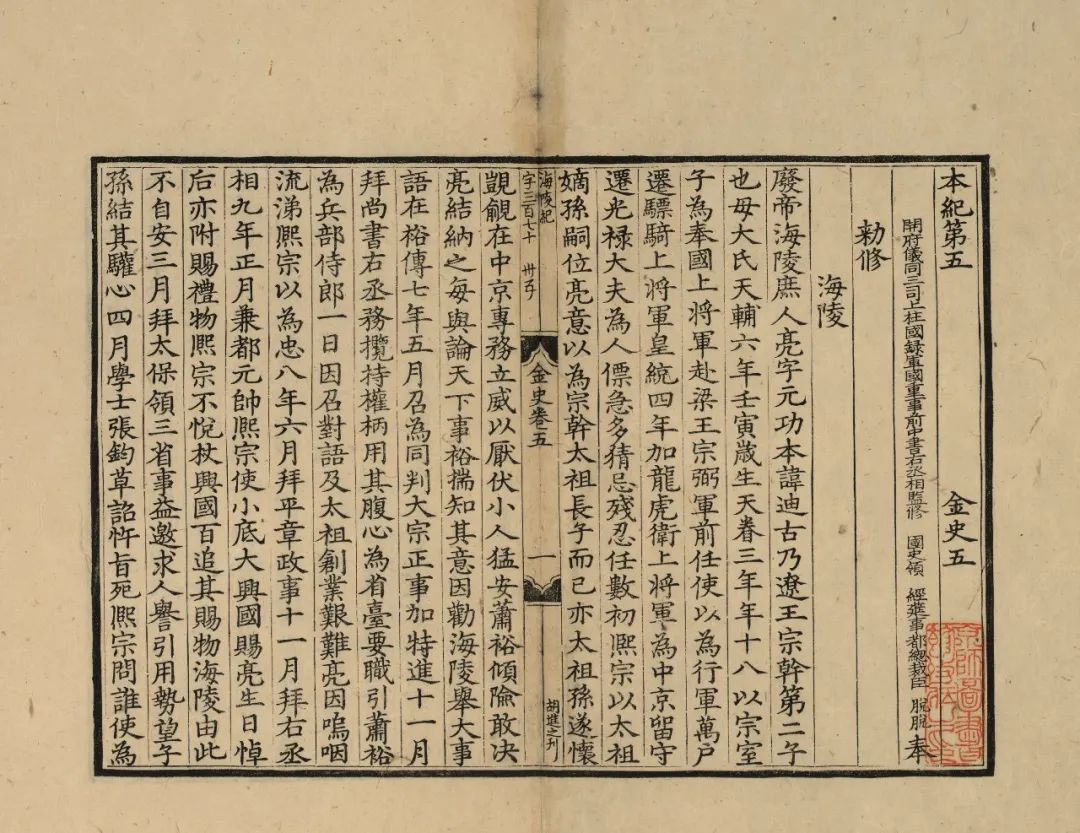 本紀第五 金史五
開府儀同三司上柱國錄軍國重事前中書右丞相監修 國史領 經筵事都總裁臣 脫脫 奉
勑修
海陵
廢帝海陵庶人亮字元功本諱迪古乃遼王宗幹第二子
也母大氏天輔六年壬寅歲生天眷三年年十八以宗室
子為奉國上將軍赴梁王宗弼軍前任使以為行軍萬戶
遷驃騎上將軍皇統四年加龍虎衛上將軍為中京留守
遷光祿大夫為人僄急多猜忌殘忍任數初熙宗以太祖
嫡孫嗣位亮意以為宗幹太祖長子而己亦太祖孫遂懷
海陵紀
字三百七十
金史卷五
一
胡進之刊
覬覦在中京專務立威以厭伏小人猛安蕭裕傾險敢決
亮結納之每與論天下事裕揣知其意因勸海陵舉大事
語在裕傳七年五月召為同判大宗正事加特進十一月
拜尚書右丞務攬持權柄用其腹心為省臺要職引蕭裕
為兵部侍郎一日因召對語及太祖創業艱難亮因嗚咽
流涕熙宗以為忠八年六月拜平章政事十一月拜右丞
相九年正月兼都元帥熙宗使小底大興國賜亮生日悼
后亦附賜禮物熙宗不悅杖興國百追其賜物海陵由此
不自安三月拜太保領三省事益邀求人譽引用勢望子
孫結其驩心四月學士張鈞草詔忤旨死熙宗問誰使為